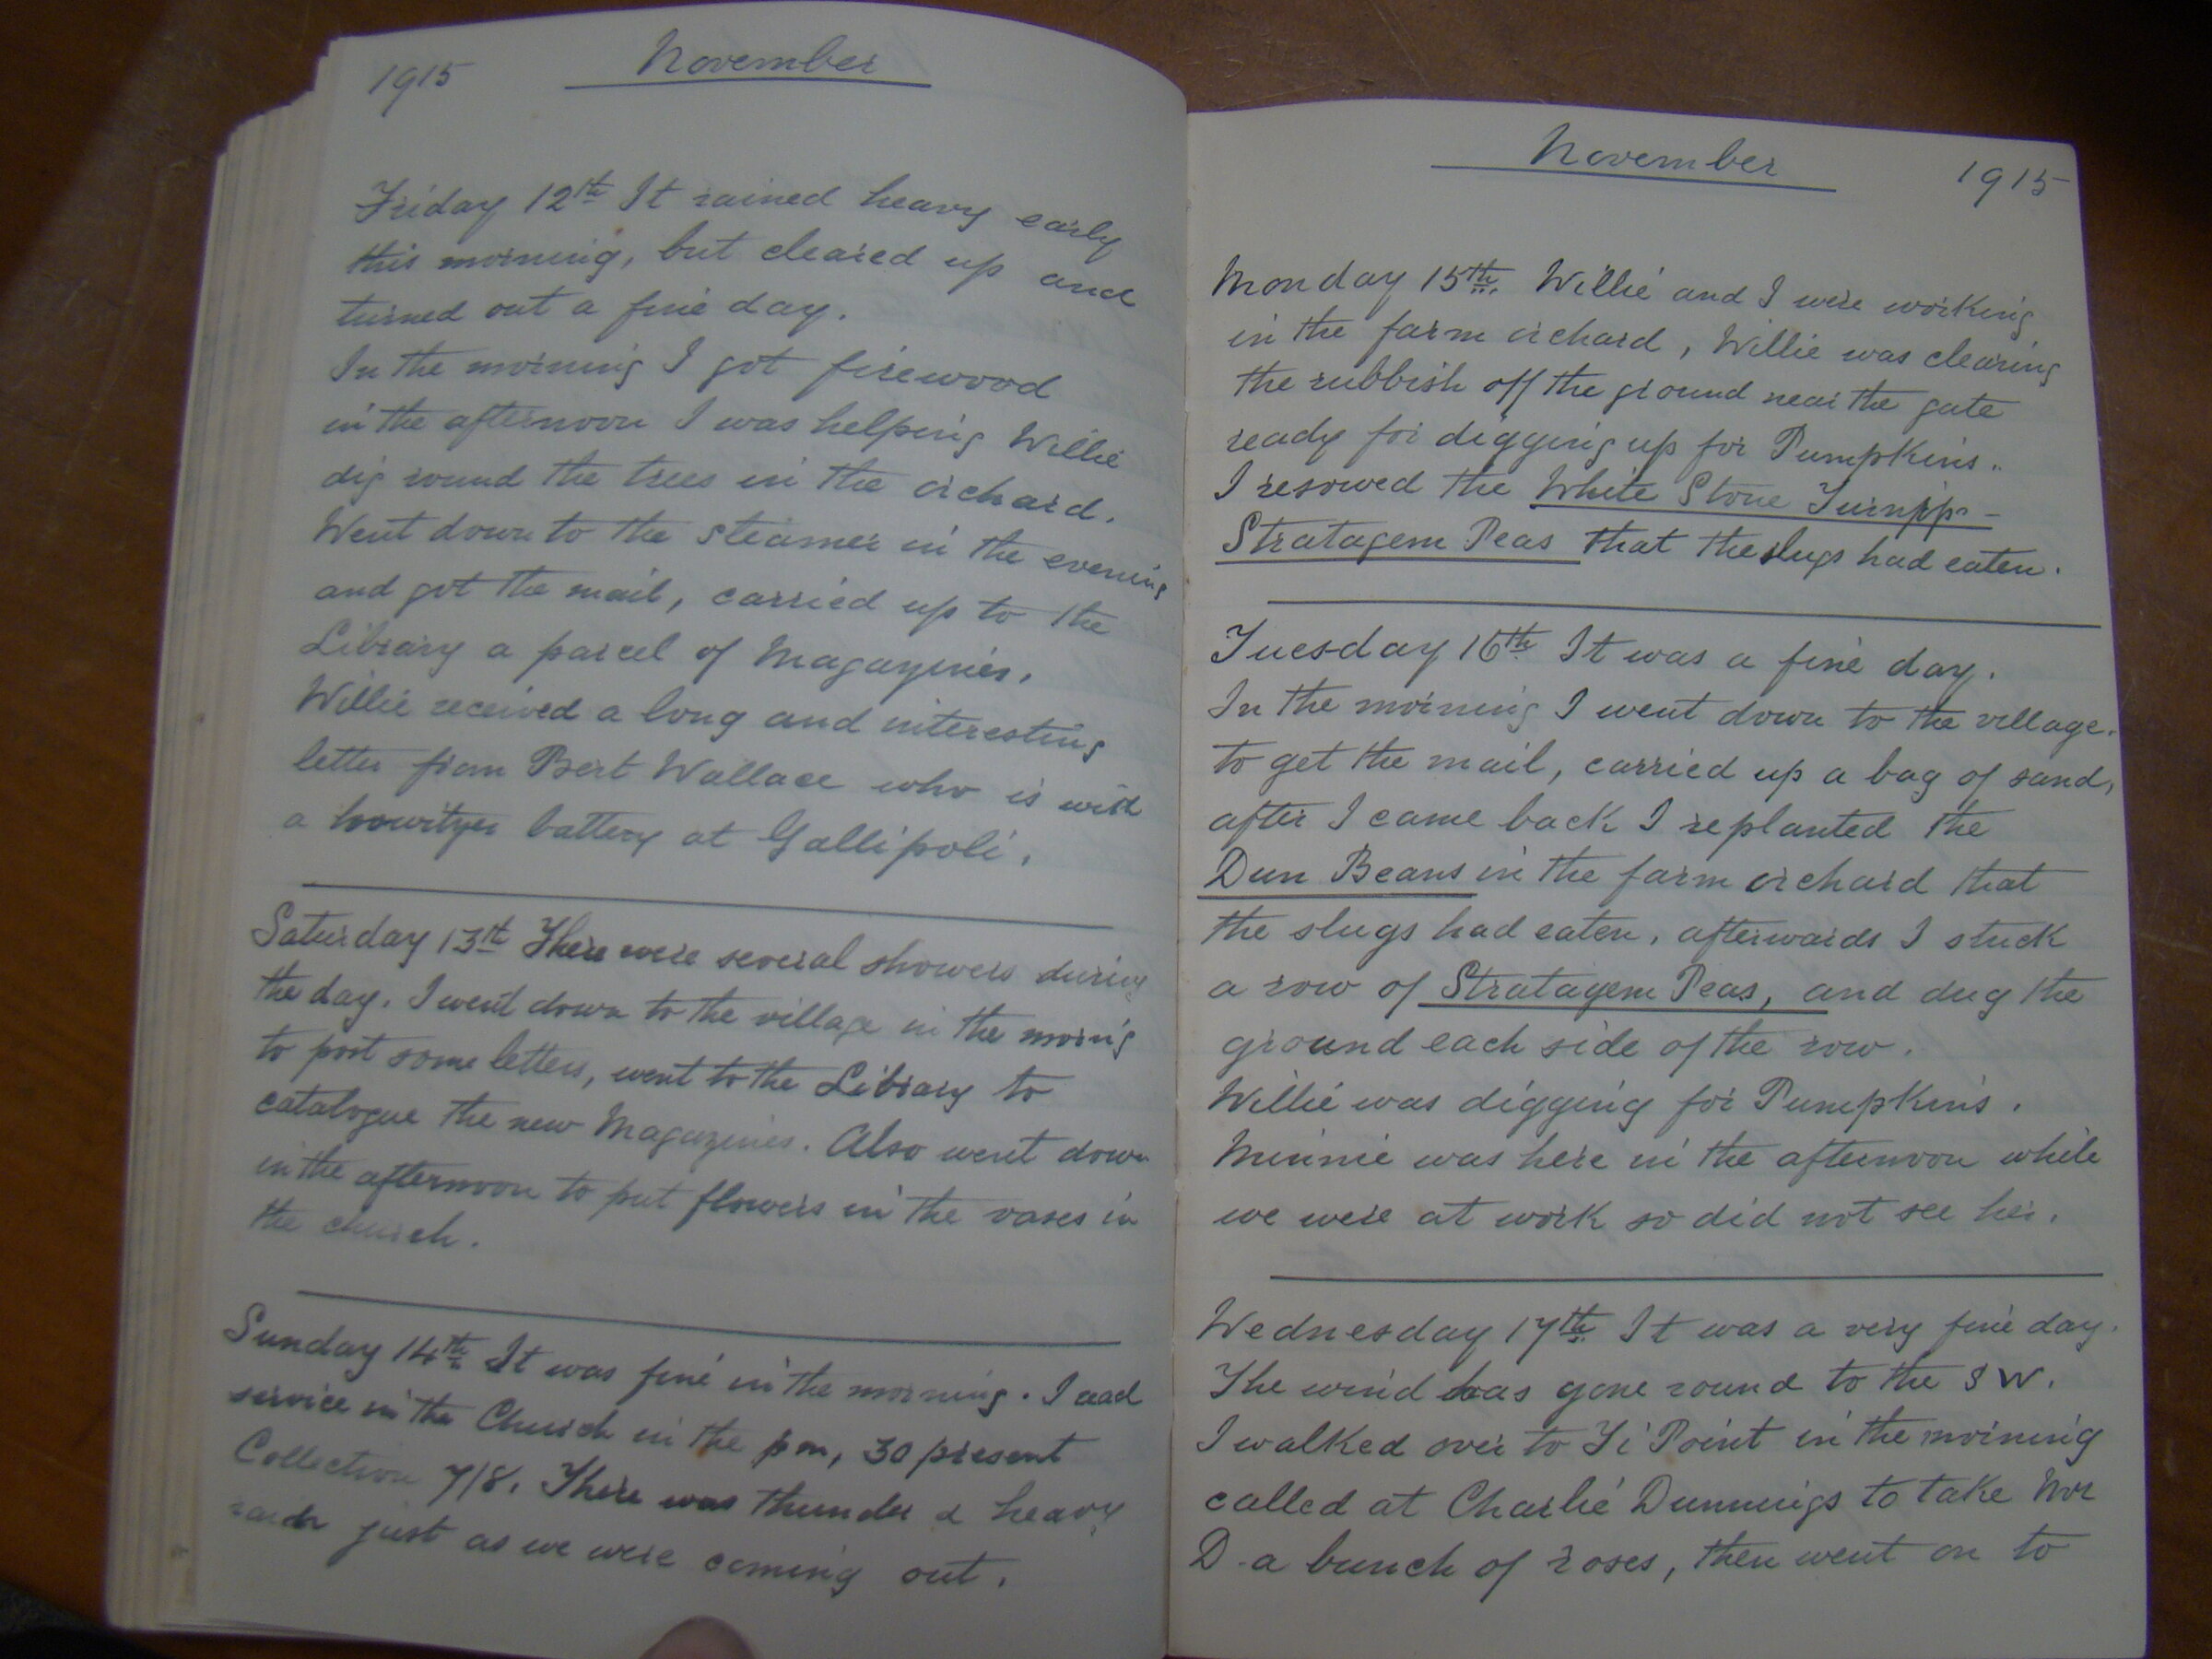 1915 November
Friday 12th It rained heavy early
this morning, but cleared up and
turned out a fine day.
In the morning I got firewood
in the afternoon I was helping Willie
dig round the trees in the orchard.
Went down to the steamer in the evening
and got the mail, carried up to the
Library a parcel of Magazines.
Willie received a long and interesting
letter from Bert Wallace who is with
a howitzer battery at Gallipoli.
Saturday 13th There were several showers during
the day. I went down to the village in the morning
to post some letters, went to the Library to
catalogue the new Magazines. Also went down
in the afternoon to put flowers in the vases in
the church.
Sunday 14th It was fine in the morning. I read
service in the Church in the pm, 30 present
Collection 7/8. There was thunder & heavy
just as we were coming out.
November 1915
Monday 15th. Willie and I were working
in the farm orchard, Willie was clearing
the rubbish off the ground near the gate
ready for digging up for Pumpkins.
I resowed the White Stone Turnips -
Stratagem Peas that the slugs had eaten.
Tuesday 16th It was a fine day.
In the morning I went down to the village.
to get the mail, carried up a bag of sand,
after I came back I replanted the
Dun Beans in the farm orchard that
the slugs had eaten, afterwards I stuck
a row of Stratagem Peas, and dug the
ground each side of the row.
Willie was digging for Pumpkins.
Minnie was here in the afternoon while
we were at work so did not see her.
Wednesday 17th It was a very fine day.
The wind has gone round to the SW.
I walked over to Ti Point in the morning
called at Charlie Dunnings to take Mrs
D - a bunch of roses, then went on to